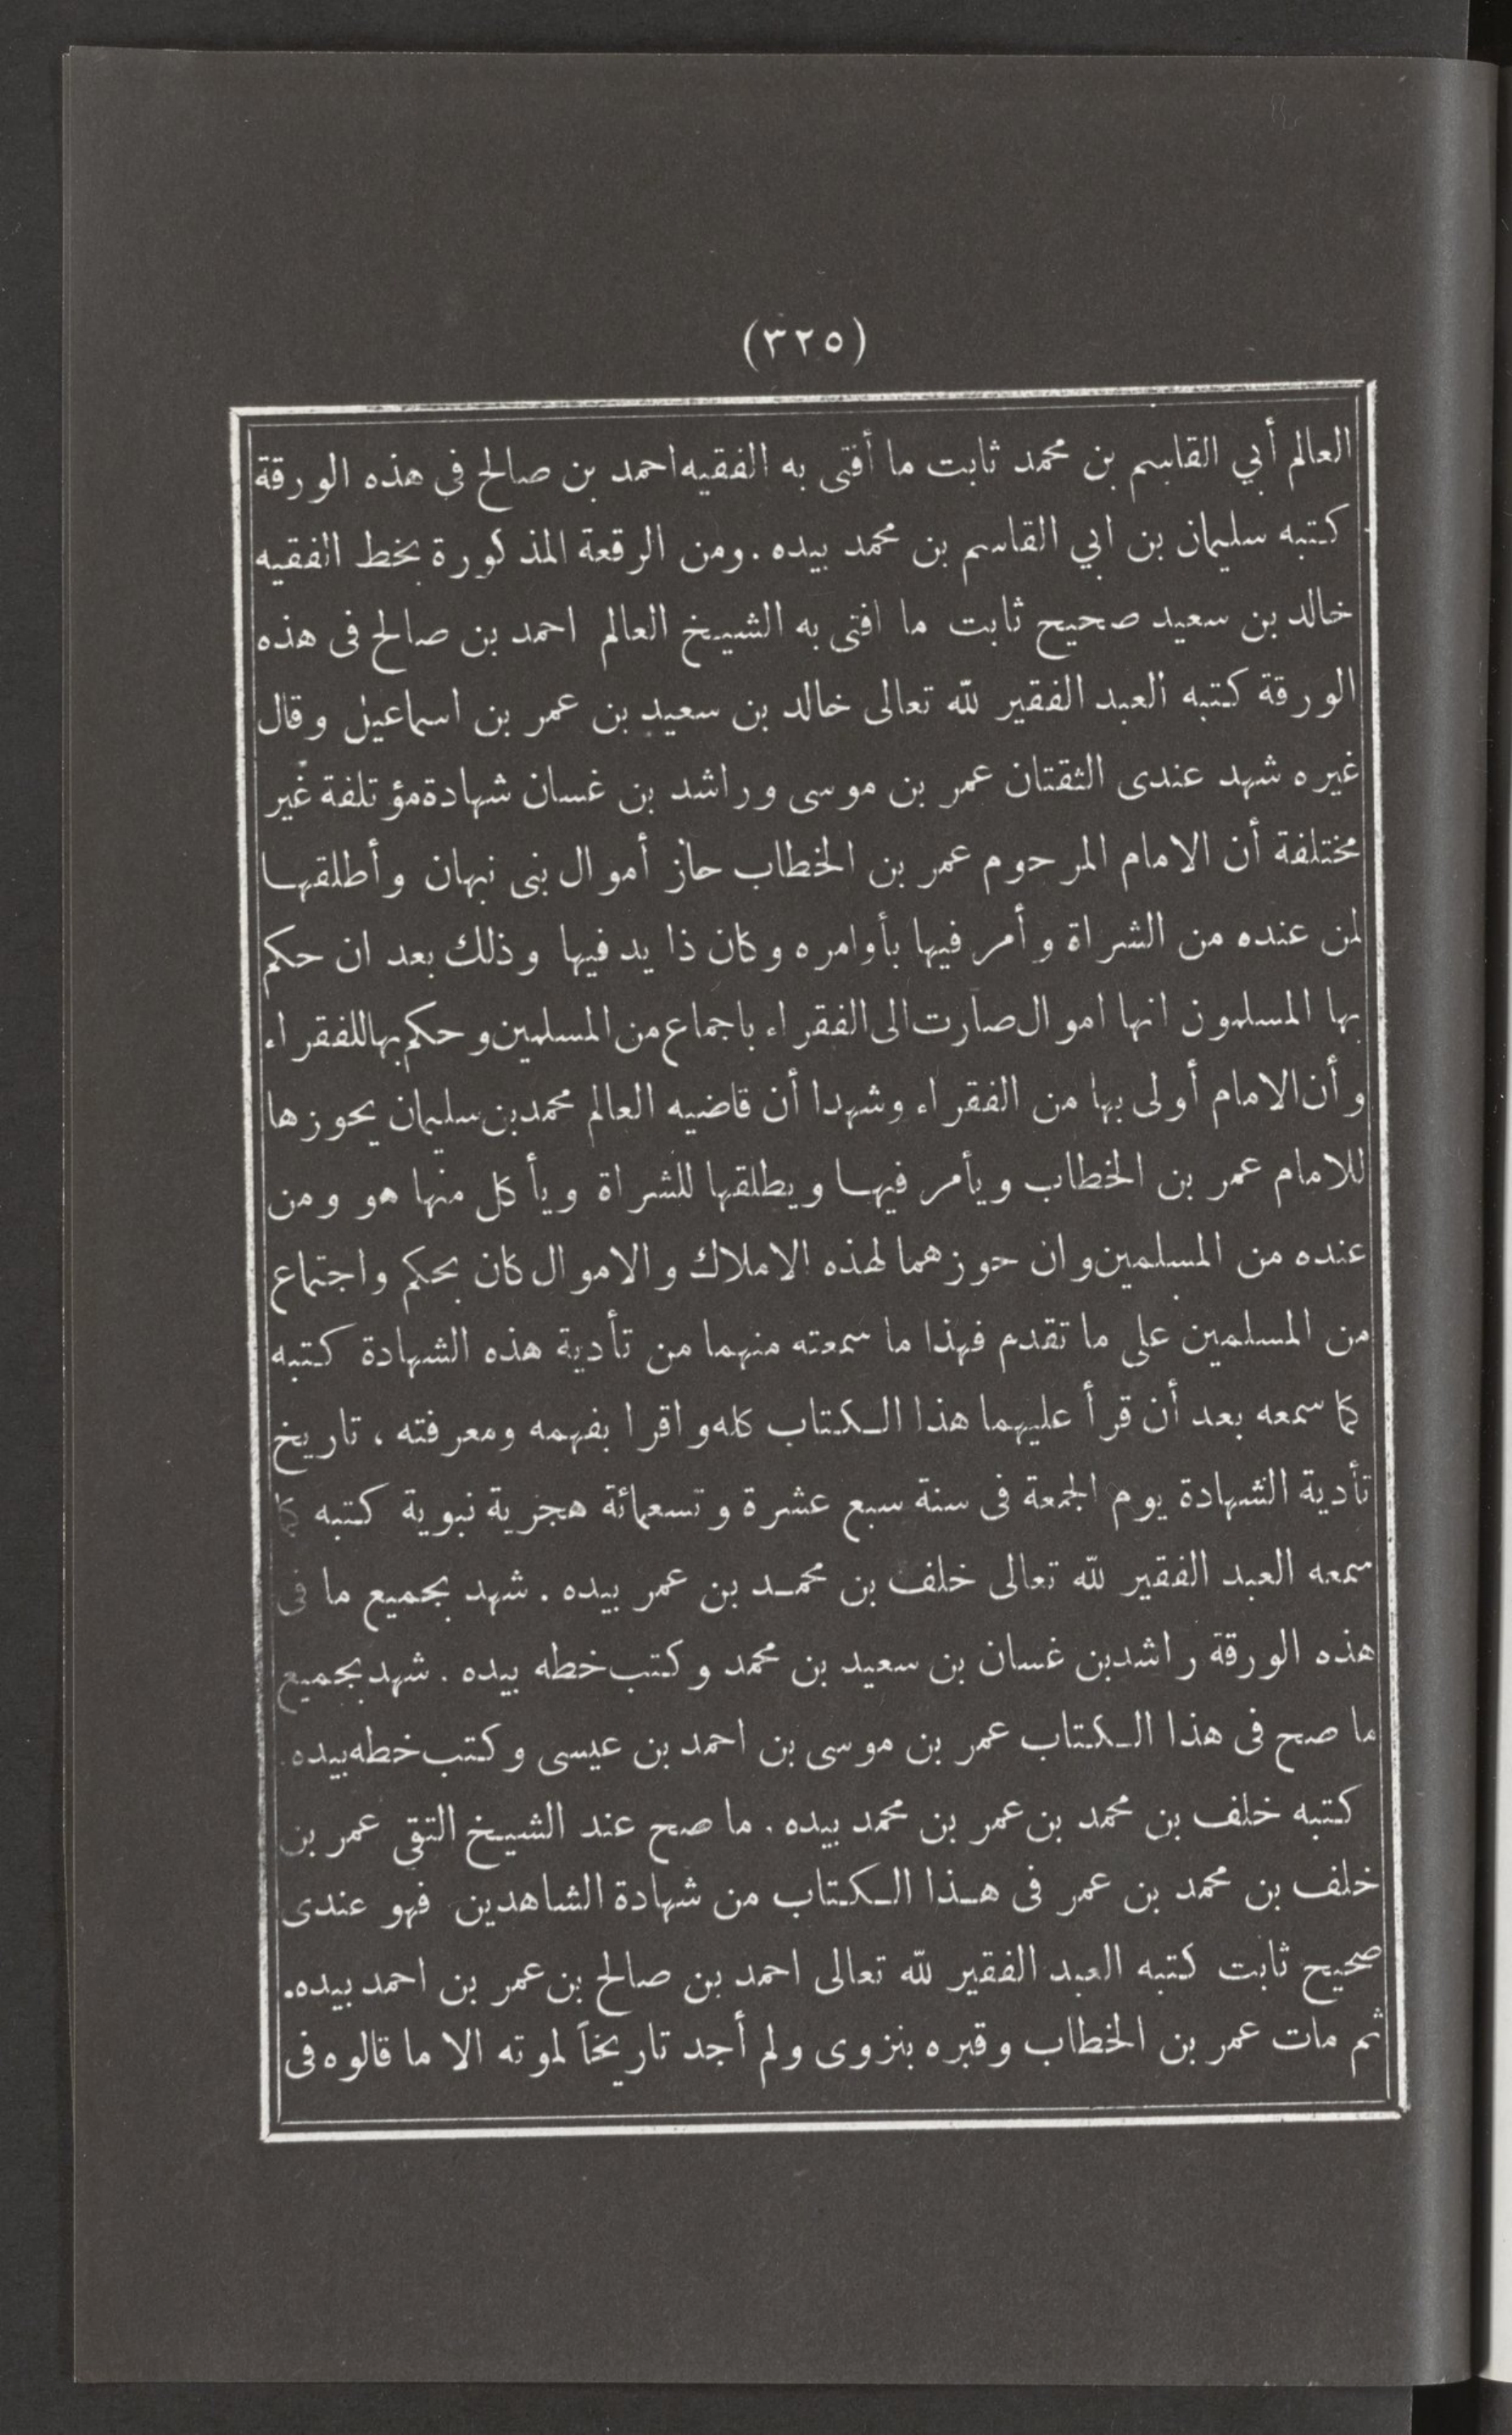 (٣٢٥)
العالم أبي القاسم بن محمد ثابت ما أفتى به الفقيه احمد بن صالح فى هذه الورقة
كتبه سليمان بن ابي القاسم بن محمد بيده . ومن الرقعة المذكورة بخط الفقيه
خالد بن سعيد صحيح ثابت ما افتى به الشيخ العالم احمد بن صالح فى هذه
الورقة كتبه العبد الفقير لله تعالى خالد بن سعيد بن عمر بن اسماعيل وقال
غيره شهد عندى الثقتان عمر بن موسى وراشد بن غسان شهادة مؤتلفة غير
مختلفة أن الامام المرحوم عمر بن الخطاب حاز أموال بنى نبهان وأطلقها
لمن عنده من الشراة وأمر فيها بأوامره وكان ذا يد فيها وذلك بعد ان حكم
بها المسلمون انها اموال صارت الى الفقراء باجماع من المسلمين وحكم بها للفقراء
وأن الامام أولى بها من الفقراء وشهدا أن قاضيه العالم محمد بن سليمان يحوزها
للامام عمر بن الخطاب ويأمر فيها ويطلقها للشراة ويأكل منها هو ومن
عنده من المسلمين وان حوزهما لهذه الاملاك والاموال كان بحكم واجتماع
من المسلمين على ما تقدم فهذا ما سمعته منهما من تأدية هذه الشهادة كتبه
كما سمعه بعد أن قرأ عليهما هذا الكتاب كله واقرا بفهمه ومعرفته ، تاريخ
تأدية الشهادة يوم الجمعة فى سنة سبع عشرة وتسعمائة هجرية نبوية كتبه كما
سمعه العبد الفقير لله تعالى خلف بن محمد بن عمر بيده . شهد بجميع ما فى
هذه الورقة راشد بن غسان بن سعيد بن محمد وكتب خطه بيده . شهد بجميع
ما صح فى هذا الكتاب عمر بن موسى بن احمد بن عيسى وكتب خطه بيده .
كتبه خلف بن محمد بن عمر بن محمد بيده . ما صح عند الشيخ التقى عمر بن
خلف بن محمد بن عمر فى هذا الكتاب من شهادة الشاهدين فهو عندى
صحيح ثابت كتبه العبد الفقير لله تعالى احمد بن صالح بن عمر بن احمد بيده .
ثم مات عمر بن الخطاب وقبره بنزوى ولم أجد تاريخاً لموته الا ما قالوه فى